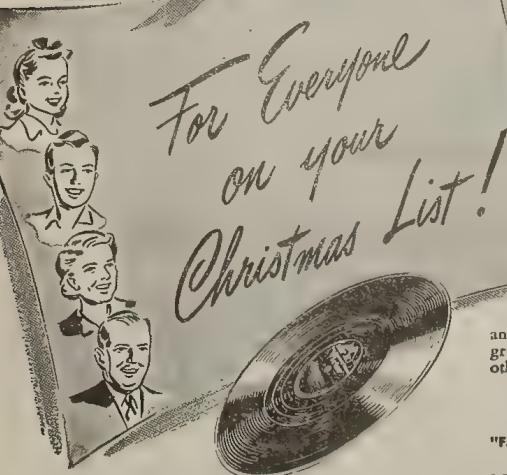 For Everyone
on your
Christmas List!
an
gr
oth
"F